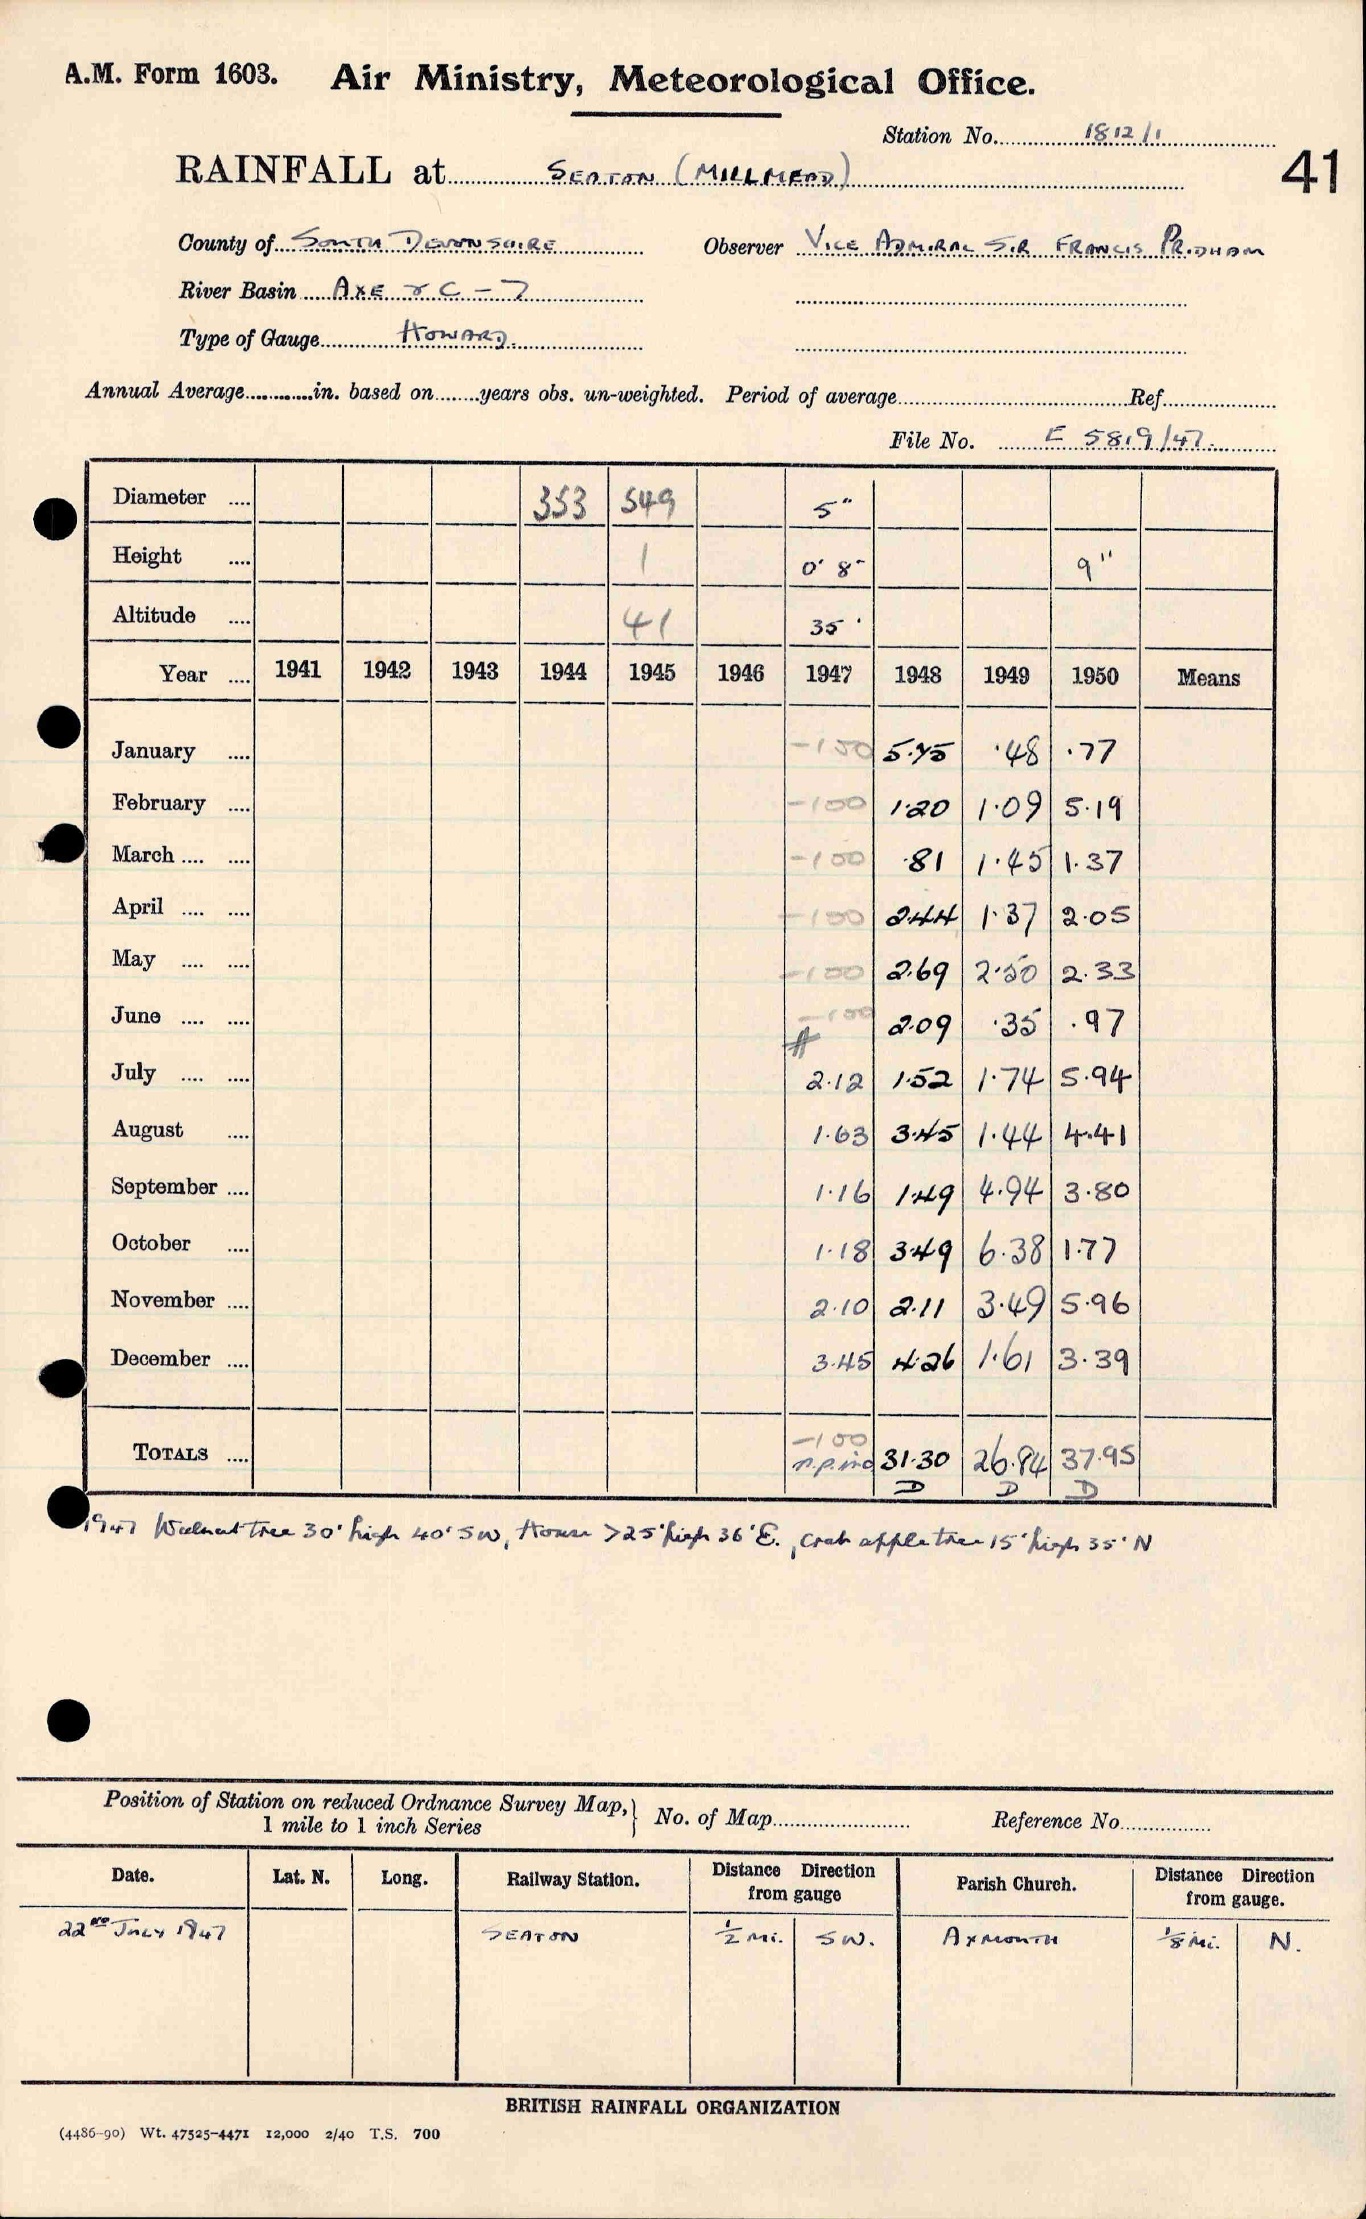 A.M. Form 1603. Air Ministry, Meteorological Office.
Station No. 1812/1
RAINFALL at SEATON (MILLMEAD) 41
County of SOUTH DEVONSHIRE Observer VICE ADMIRAL SIR FRANCIS PRIDHAM
River Basin AXE & C - 7
Type of Gauge HOWARD.
Annual Average............in. based on........years obs. un-weighted. Period of average............Ref............
File No. E 5819/47.
Diameter .... 353 549 5"
Height .... 1 0' 8" 9"
Altitude .... 41 35'
Year .... 1941 1942 1943 1944 1945 1946 1947 1948 1949 1950 Means
January .... -100 5.75 .48 .77
February .... -100 1.20 1.09 5.19
March .... .... -100 .81 1.45 1.37
April .... .... -100 2.44 1.37 2.05
May .... .... -100 2.69 2.50 2.33
June .... .... -100 2.09 .35 .97
July .... .... 2.12 1.52 1.74 5.94
August .... 1.63 3.45 1.44 4.41
September .... 1.16 1.49 4.94 3.80
October .... 1.18 3.49 6.38 1.77
November .... 2.10 2.11 3.49 5.96
December .... 3.45 4.26 1.61 3.39
TOTALS .... -100 31.30 26.84 37.95
D D D
1947 Walnut tree 30' high 40' SW, House >25' high 36' E., crab apple tree 15' high 35' N
Position of Station on reduced Ordnance Survey Map, } No. of Map............ Reference No............
1 mile to 1 inch Series
Date. Lat. N. Long. Railway Station. Distance Direction from gauge Parish Church. Distance Direction from gauge.
22ND JULY 1947 SEATON 1/2 MI. SW. AXMOUTH 1/8 MI. N.
BRITISH RAINFALL ORGANIZATION
(4486-90) Wt. 47525-4471 12,000 2/40 T.S. 700